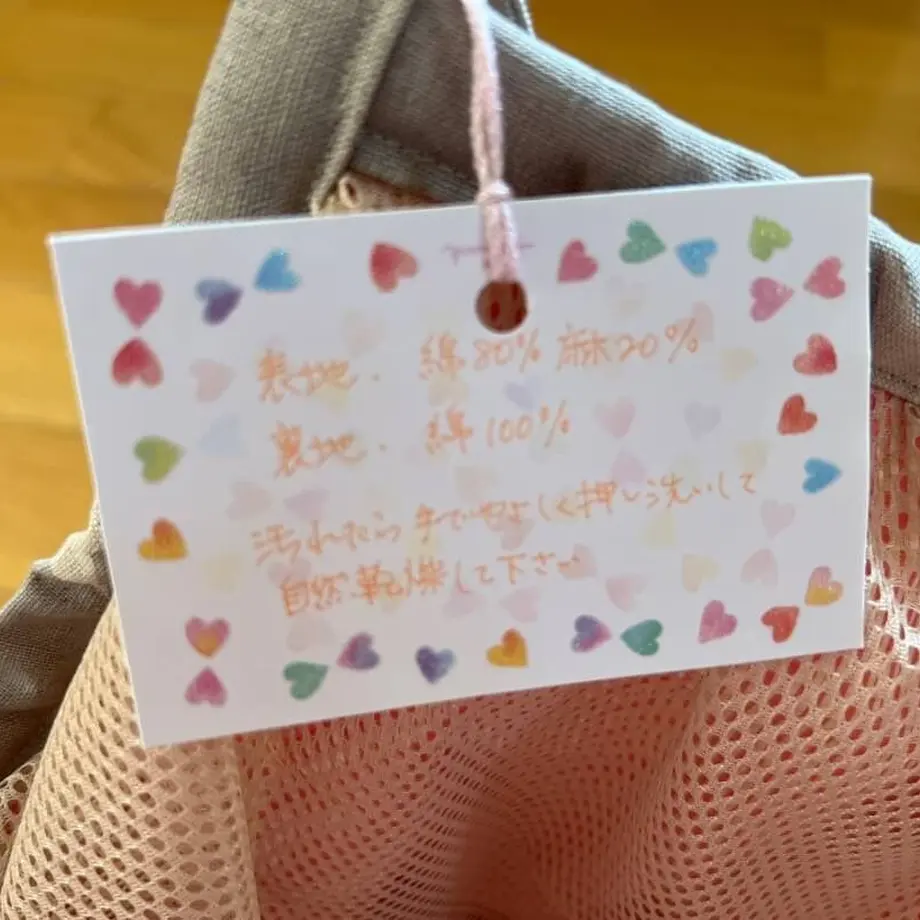 表地. 綿80% 麻20%
裏地. 綿100%
汚れたら手でやさしく押し洗いして
自然乾燥して下さい